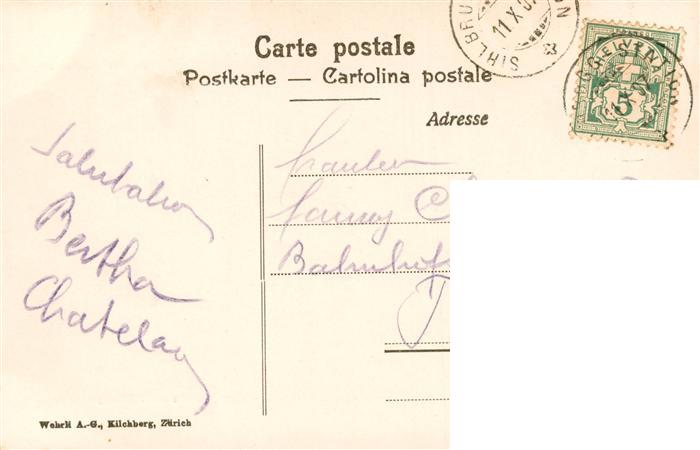 Carte postale
Postkarte — Cartolina postale
SIHLBRU
11 X 0
HELVETIA
5
Adresse
Salutation
Bertha
Chatelain
Fräulein
Fanny
Bahnhof
Wehrli A.-G., Kilchberg, Zürich